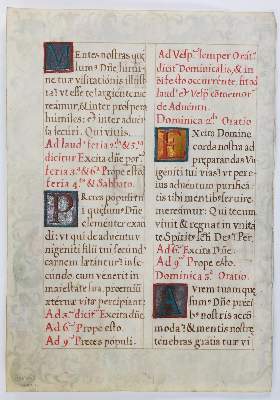 MEntes nostras quę
sumus Dñe lumi-
ne tuæ visitationis illust-
ra: vt esse te largiente me-
reamur, & inter prospera
humiles: & inter adver
sa securi. Qui vivis.
Ad laud' feria 2ª & 5ª
dicitur Excita dñe po-
feria 3ª & 6ª Prope esto.
feria 4ª & Sabbato.
PReces populi tui
quęsumus Dñe
clementer exau
di: vt qui de adventu v-
nigeniti filii tui secund'
carnem lætantur: in se-
cundo, cum venerit in
majestate sua, præmiū
æternæ vitæ percipiant.
Ad 3ª dicit' Excita Dñe
Ad 6ª Prope esto.
Ad 9ª Preces populi.
Ad Vesp' semper Orat'
dicit' Dominicalis, & in
festo occurrente, sit ad
laud' & Vesp' cōmemor'
de Adventu.
Dominica 2ª Oratio
EXcita Domine
corda nostra ad
præparandas V-
nigeniti tui vias: vt per e-
jus adventum purifica-
tis tibi mentib' servire
mereamur: Qui tecum
vivit & regnat in vnita
te Spirit' scti Deus Per
Ad 6ª Excita Dñe
Ad 9ª Prope esto.
Dominica 3ª Oratio.
AVrem tuam quæ
sum' Dñe preci
b' nostris acco
moda: & mentis nostræ
tenebras gratia tuæ vi